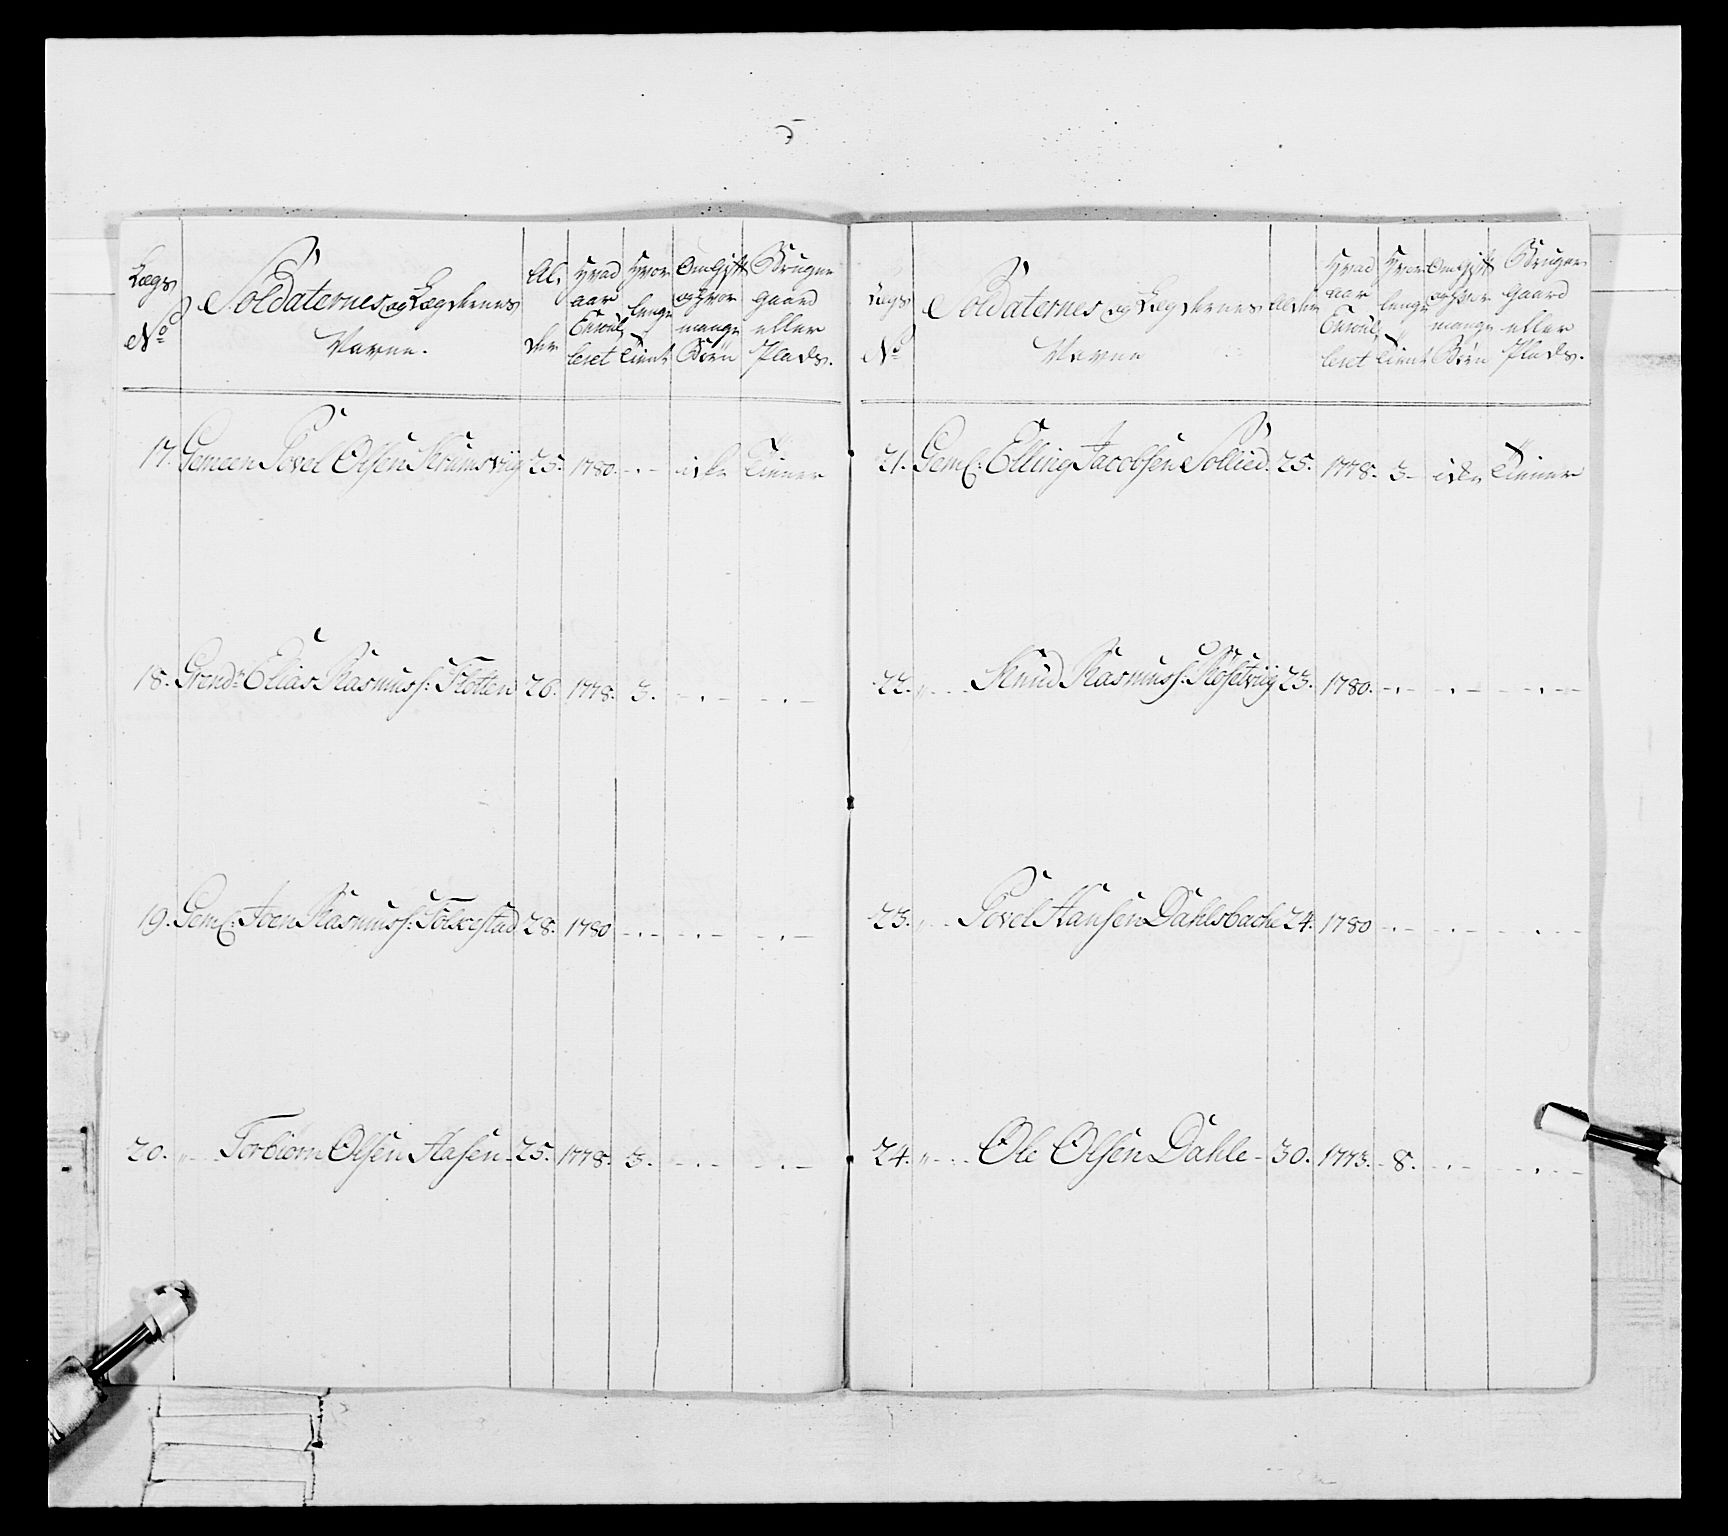 Lægs
No
Soldaternes og Lægdernes
Navne.
Al,
der
Hvad
aar
Enroul,
leret
Hvor
lenge
Tient
Om Gift
og Hvor
mange
Børn
Bruger
gaard
eller
Plads.
17. Gemeen Povel Olsen Krumsviig 25. 1780. -.- icke Tiener
18. Grendr Elias Rasmuss: Floten 26. 1778. 3. -.- -.-
19. Geml: Joen Rasmuss: Folvestad 28. 1780 -.- -.- -.-
20. „ Torbiørn Olsen Aasen - 25. 1778. 3. -.- -.-
Lægs
No
Soldaternes og Lægdernes
Navne
Alder
Hvad
aar
Enroul,
leret
Hvor
lenge
Tient
Om Gift
og Hvor
mange
Børn
Bruger
Gaard
eller
Plads.
21. Geml: Elling Jacobsen Sollied. 25. 1778. 3- icke Tiener
22. „ Knud Rasmuss: Røsetviig 23. 1780. -.- -.- -.-
23. „ Povel Hansen Dahlsbache 24. 1780 -.- -.- -.-
24. „ Ole Olsen Dahle - 30. 1773. 8. -.- -.-